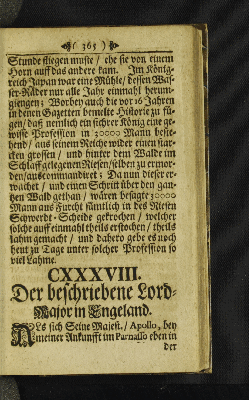 ( 365 )
Stunde fliegen muste / ehe sie von einem
Horn auff das andere kam. Im König-
reich Japan war eine Mühle / dessen Was-
ser-Räder nur alle Jahr einmahl herum-
giengen; Worbey auch die vor 16 Jahren
in denen Gazetten bemelte Historie zu fü-
gen / daß nemlich ein sichrer König eine ge-
wisse Profession in 30000 Mann beste-
hend / aus seinem Reiche wider einen star-
cken grossen / und hinter dem Walde im
Schlaff gelegenen Riesen / selben zu ermor-
den / auscommandiret; Da nun dieser er-
wachet / und einen Schritt über den gan-
tzen Wald gethan / wären besagte 30000
Mann aus Furcht sämtlich in des Riesen
Schwerdt-Scheide gekrochen / welcher
solche auff einmahl theils erstochen / theils
lahm gemacht / und dahero gebe es noch
heut zu Tage unter solcher Profession so
viel Lahme.
CXXXVIII.
Der beschriebene Lord-
Major in Engeland.
ALs sich Seine Majest. / Apollo, bey
meiner Ankunfft im Parnasso eben in
der